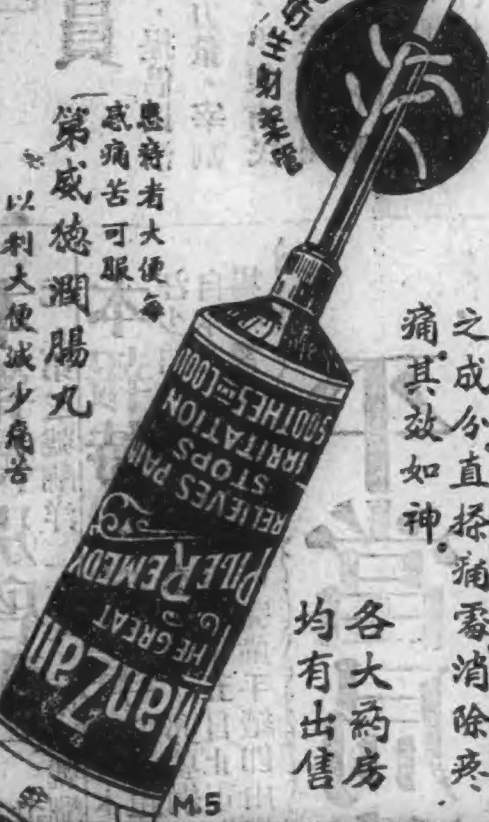 之成分直搽痛霛消除疼
痛其效如神
各大葯房
均有出售
患痔者大便每
感痛苦可服
第威德潤腸丸
以利大便減少痛苦
ManZan
THE GREAT
PILE REMEDY
RELIEVES PAIN
STOPS
IRRITATION
SOOTHES COOLS
M.5